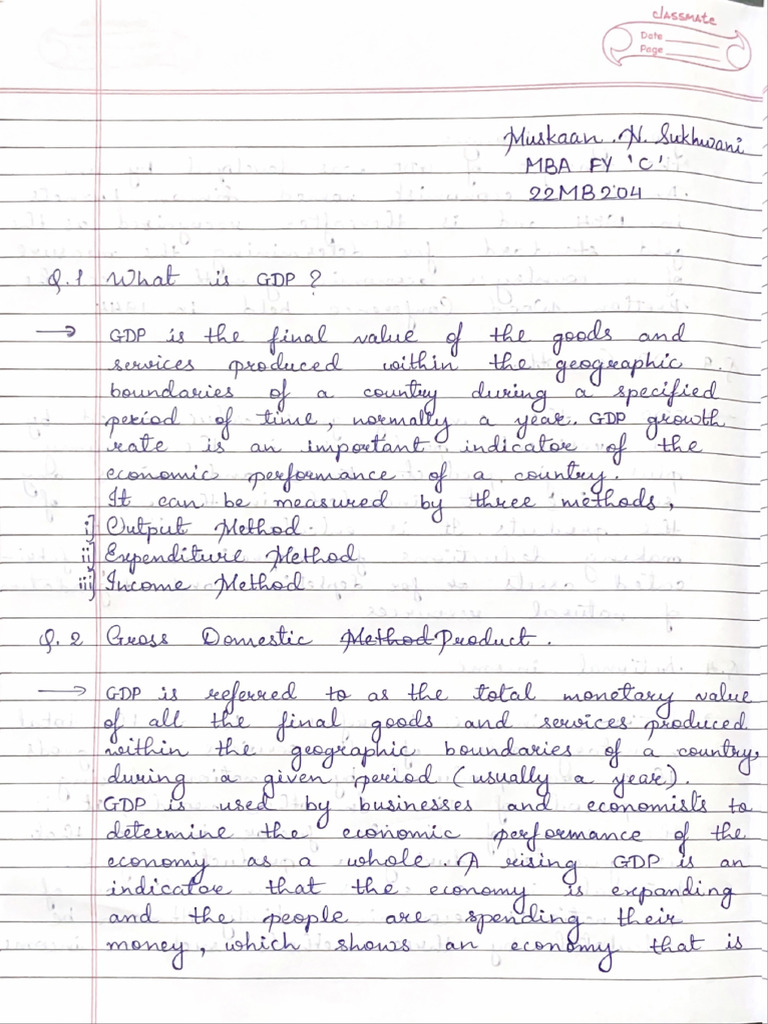 classmate
Date
Page
Muskaan .N. Sukhwani
MBA FY 'C'
22MB204
Q.1 What is GDP ?
→ GDP is the final value of the goods and
services produced within the geographic
boundaries of a country during a specified
period of time, normally a year. GDP growth
rate is an important indicator of the
economic performance of a country.
It can be measured by three methods,
i] Output Method.
ii] Expenditure Method
iii] Income Method
Q. 2 Gross Domestic Method Product .
→ GDP is referred to as the total monetary value
of all the final goods and services produced
within the geographic boundaries of a country,
during a given period (usually a year).
GDP is used by businesses and economists to
determine the economic performance of the
economy as a whole. A rising GDP is an
indicator that the economy is expanding
and the people are spending their
money, which shows an economy that is